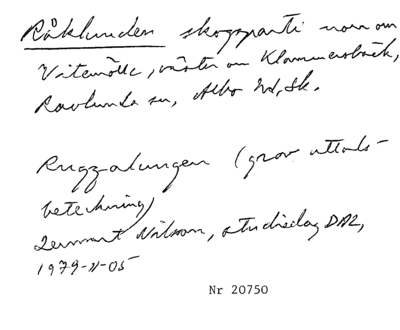 Råklunden skogsparti norr om
Vitemölle, väster om Klammersbäck,
Ravlunda sn, Albo hd, Sk.
(grov uttals-
beteckning)
Lennart Nilsson, studiedag DAL,
1979-11-05
Nr 20750